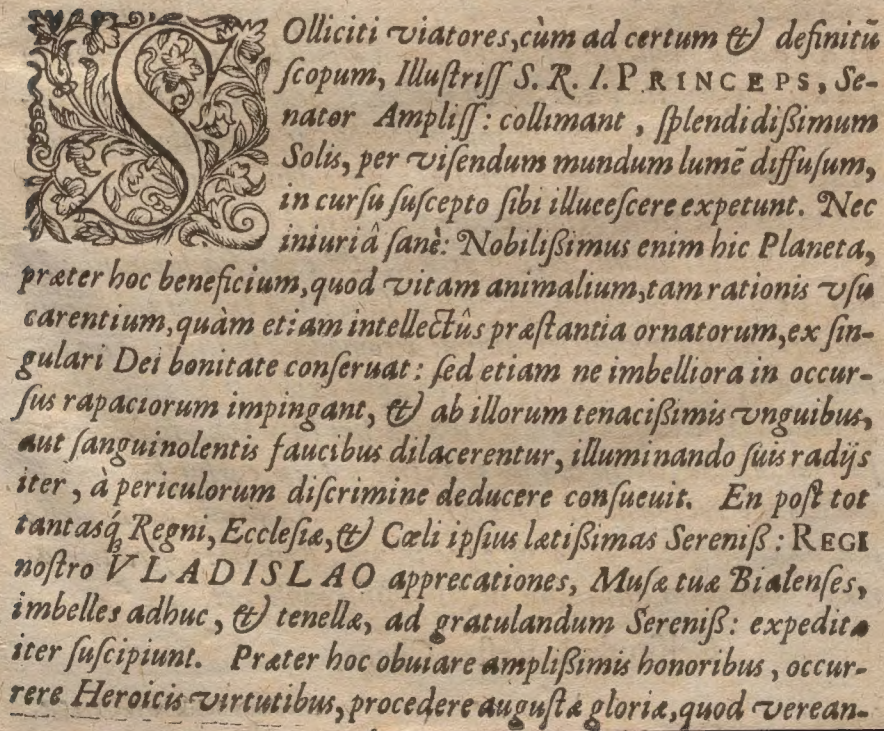 SOlliciti viatores, cùm ad certum & definitũ
ſcopum, Illuſtriſſ S. R. I. PRINCEPS, Se-
nator Ampliſſ: collimant, ſplendidißimum
Solis, per viſendum mundum lumẽ diffuſum,
in curſu ſuſcepto ſibi illuceſcere expetunt. Nec
iniuriâ ſanè: Nobilißimus enim hic Planeta,
præter hoc beneficium, quod vitam animalium, tam rationis vſu
carentium, quàm etiam intellectûs præſtantia ornatorum, ex ſin-
gulari Dei bonitate conſeruat: ſed etiam ne imbelliora in occur-
ſus rapaciorum impingant, & ab illorum tenacißimis vnguibus,
aut ſanguinolentis faucibus dilacerentur, illuminando ſuis radijs
iter, à periculorum diſcrimine deducere conſueuit. En poſt tot
tantasq́; Regni, Eccleſiæ, & Cœli ipſius lætißimas Sereniß: REGI
noſtro VLADISLAO apprecationes, Muſæ tuæ Bialenſes,
imbelles adhuc, & tenellæ, ad gratulandum Sereniß: expedita
iter ſuſcipiunt. Præter hoc obuiare amplißimis honoribus, occur-
rere Heroicis virtutibus, procedere auguſtæ gloriæ, quod verean-